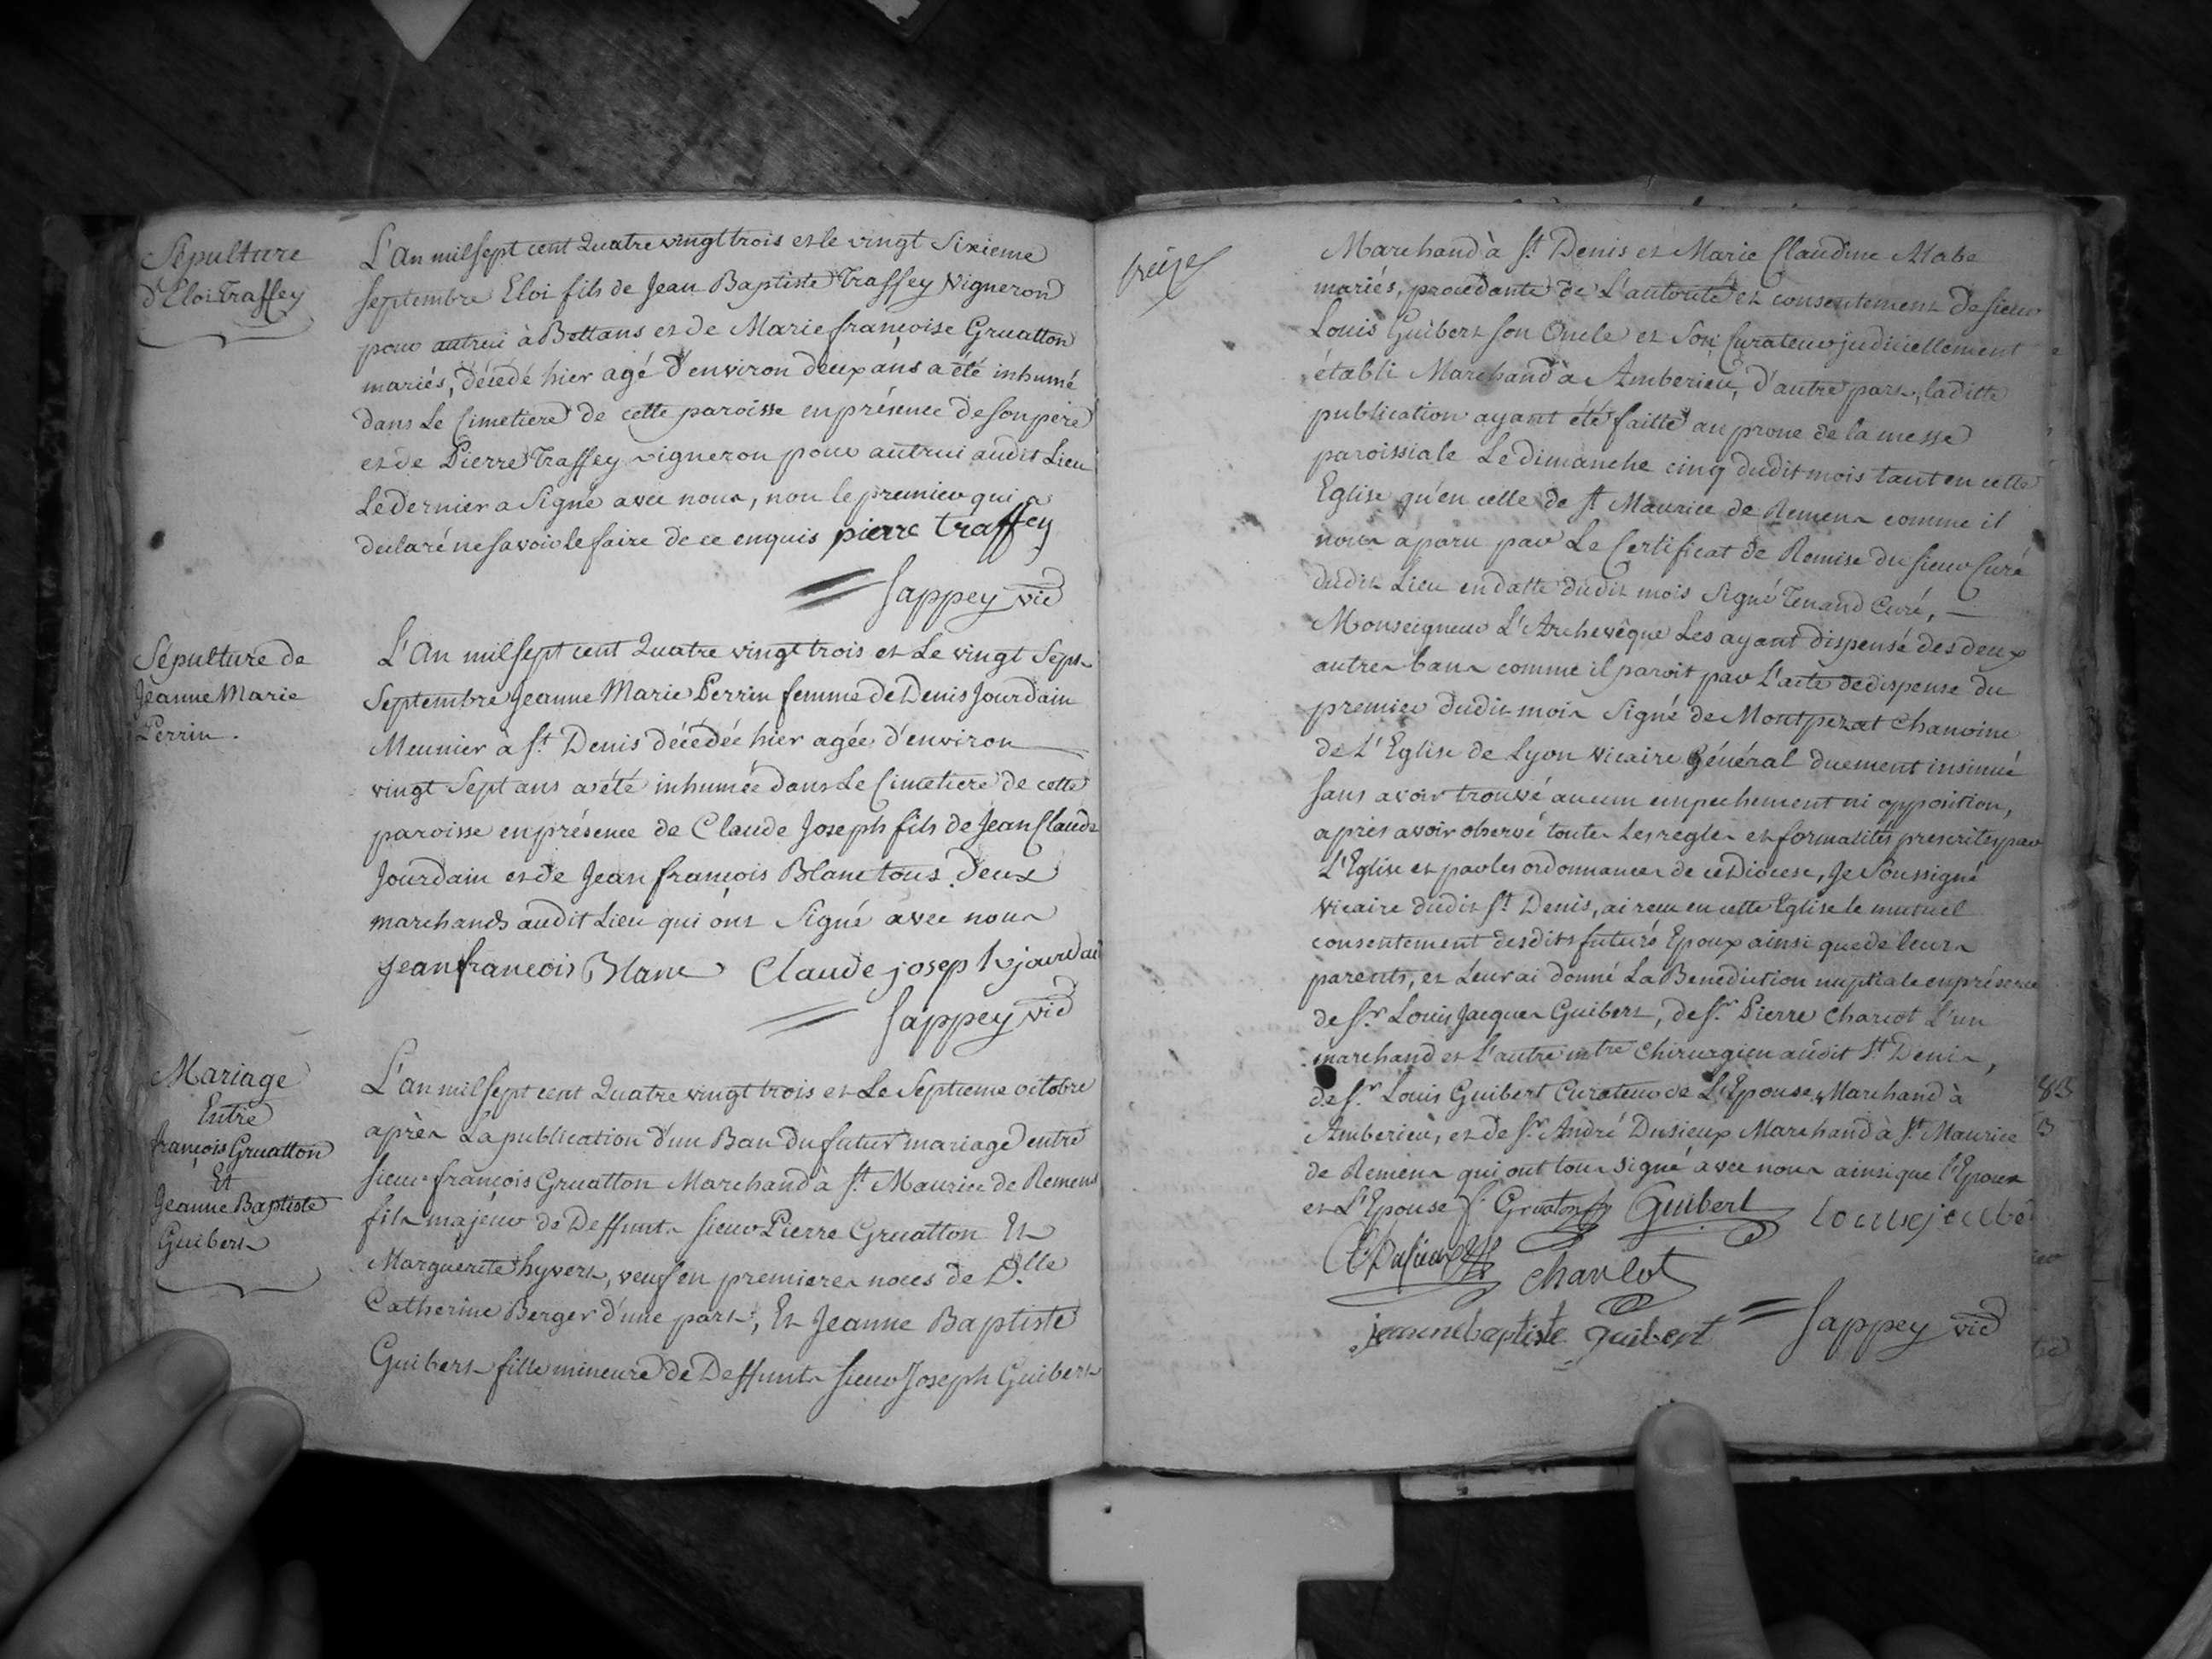 Sépulture
d'Eloi Traffey
L'An mil sept cent Quatre vingt trois et le vingt Sixieme
septembre Eloi fils de Jean Baptiste Traffey Vigneron
pour autrui à Bettans et de Marie françoise Gruatton
mariés, décédé hier agé d'environ deux ans a été inhumé
dans Le Cimetiere de cette paroisse en présence de son pere
et de Pierre Traffey vigneron pour autrui audit Lieu
Le dernier a Signé avec nous, non le premier qui a
declaré ne savoir le faire de ce enquis pierre traffey
Sappey vic
Sépulture de
Jeanne Marie
Perrin.
L'An mil sept cent Quatre vingt trois et Le vingt Sept
Septembre Jeanne Marie Perrin femme de Denis Jourdain
Meunier à St. Denis décédée hier agée d'environ
vingt Sept ans a été inhumée dans Le Cimetiere de cette
paroisse en présence de Claude Joseph fils de Jean Claude
Jourdain et de Jean françois Blanc tous deux
marchands audit Lieu qui ont Signé avec nous
jean francois Blanc Claude joseph jourdain
Sappey vic
Mariage
Entre
françois Gruatton
Et
Jeanne Baptiste
Guibert
L'an mil sept cent Quatre vingt trois et Le Septieme octobre
après La publication d'un Ban du futur mariage entre
sieur françois Gruatton Marchand à St. Maurice de Remens
fils majeur de Deffunts sieur Pierre Gruatton Et
Marguerite hyvert, veuf en premieres noces de D.lle
Catherine Berger d'une part; Et Jeanne Baptiste
Guibert fille mineure de Deffunts sieur Joseph Guibert
treize
Marchand à St. Denis et Marie Claudine
mariés, procedante de L'autorité et consentement de sieur
Louis Guibert son Oncle et Son Curateur judiciellement
établi Marchand à Amberieu, d'autre part, la ditte
publication ayant été faitte au prone de la messe
paroissiale Le dimanche cinq dudit mois tant en cette
Eglise qu'en celle de St. Maurice de Remens comme il
nous a paru par Le Certificat de Remise du sieur Curé
dudit Lieu en datte dudit mois Signé Tenand Curé,
Monseigneur L'Archevêque Les ayant dispensé des deux
autres bans comme il paroit par L'acte de dispense du
premier dudit mois Signé de Montpezat Chanoine
de L'Eglise de Lyon Vicaire Général duement insinué
sans avoir trouvé aucun empechement ni opposition,
après avoir observé toutes Les regles et formalités prescrites par
L'Eglise et par les ordonnances de ce Diocese, Je Soussigné
Vicaire dudit St. Denis, ai reçu en cette Eglise le mutuel
consentement desdits futurs Epoux ainsi que de leurs
parents, et Leur ai donné La Benediction nuptiale en présence
de Sr. Louis Jacques Guibert, de Sr. Pierre Charlot L'un
marchand et L'autre mtre Chirurgien audit St. Denis,
de Sr. Louis Guibert Curateur de L'Epouse, Marchand à
Amberieu, et de Sr. André Dusieux Marchand à St. Maurice
de Remens qui ont tous signé avec nous ainsi que l'Epoux
et L'Epouse f. Gruatton Guibert
Dusieux Charlot
jeanne baptiste guibert Sappey vic